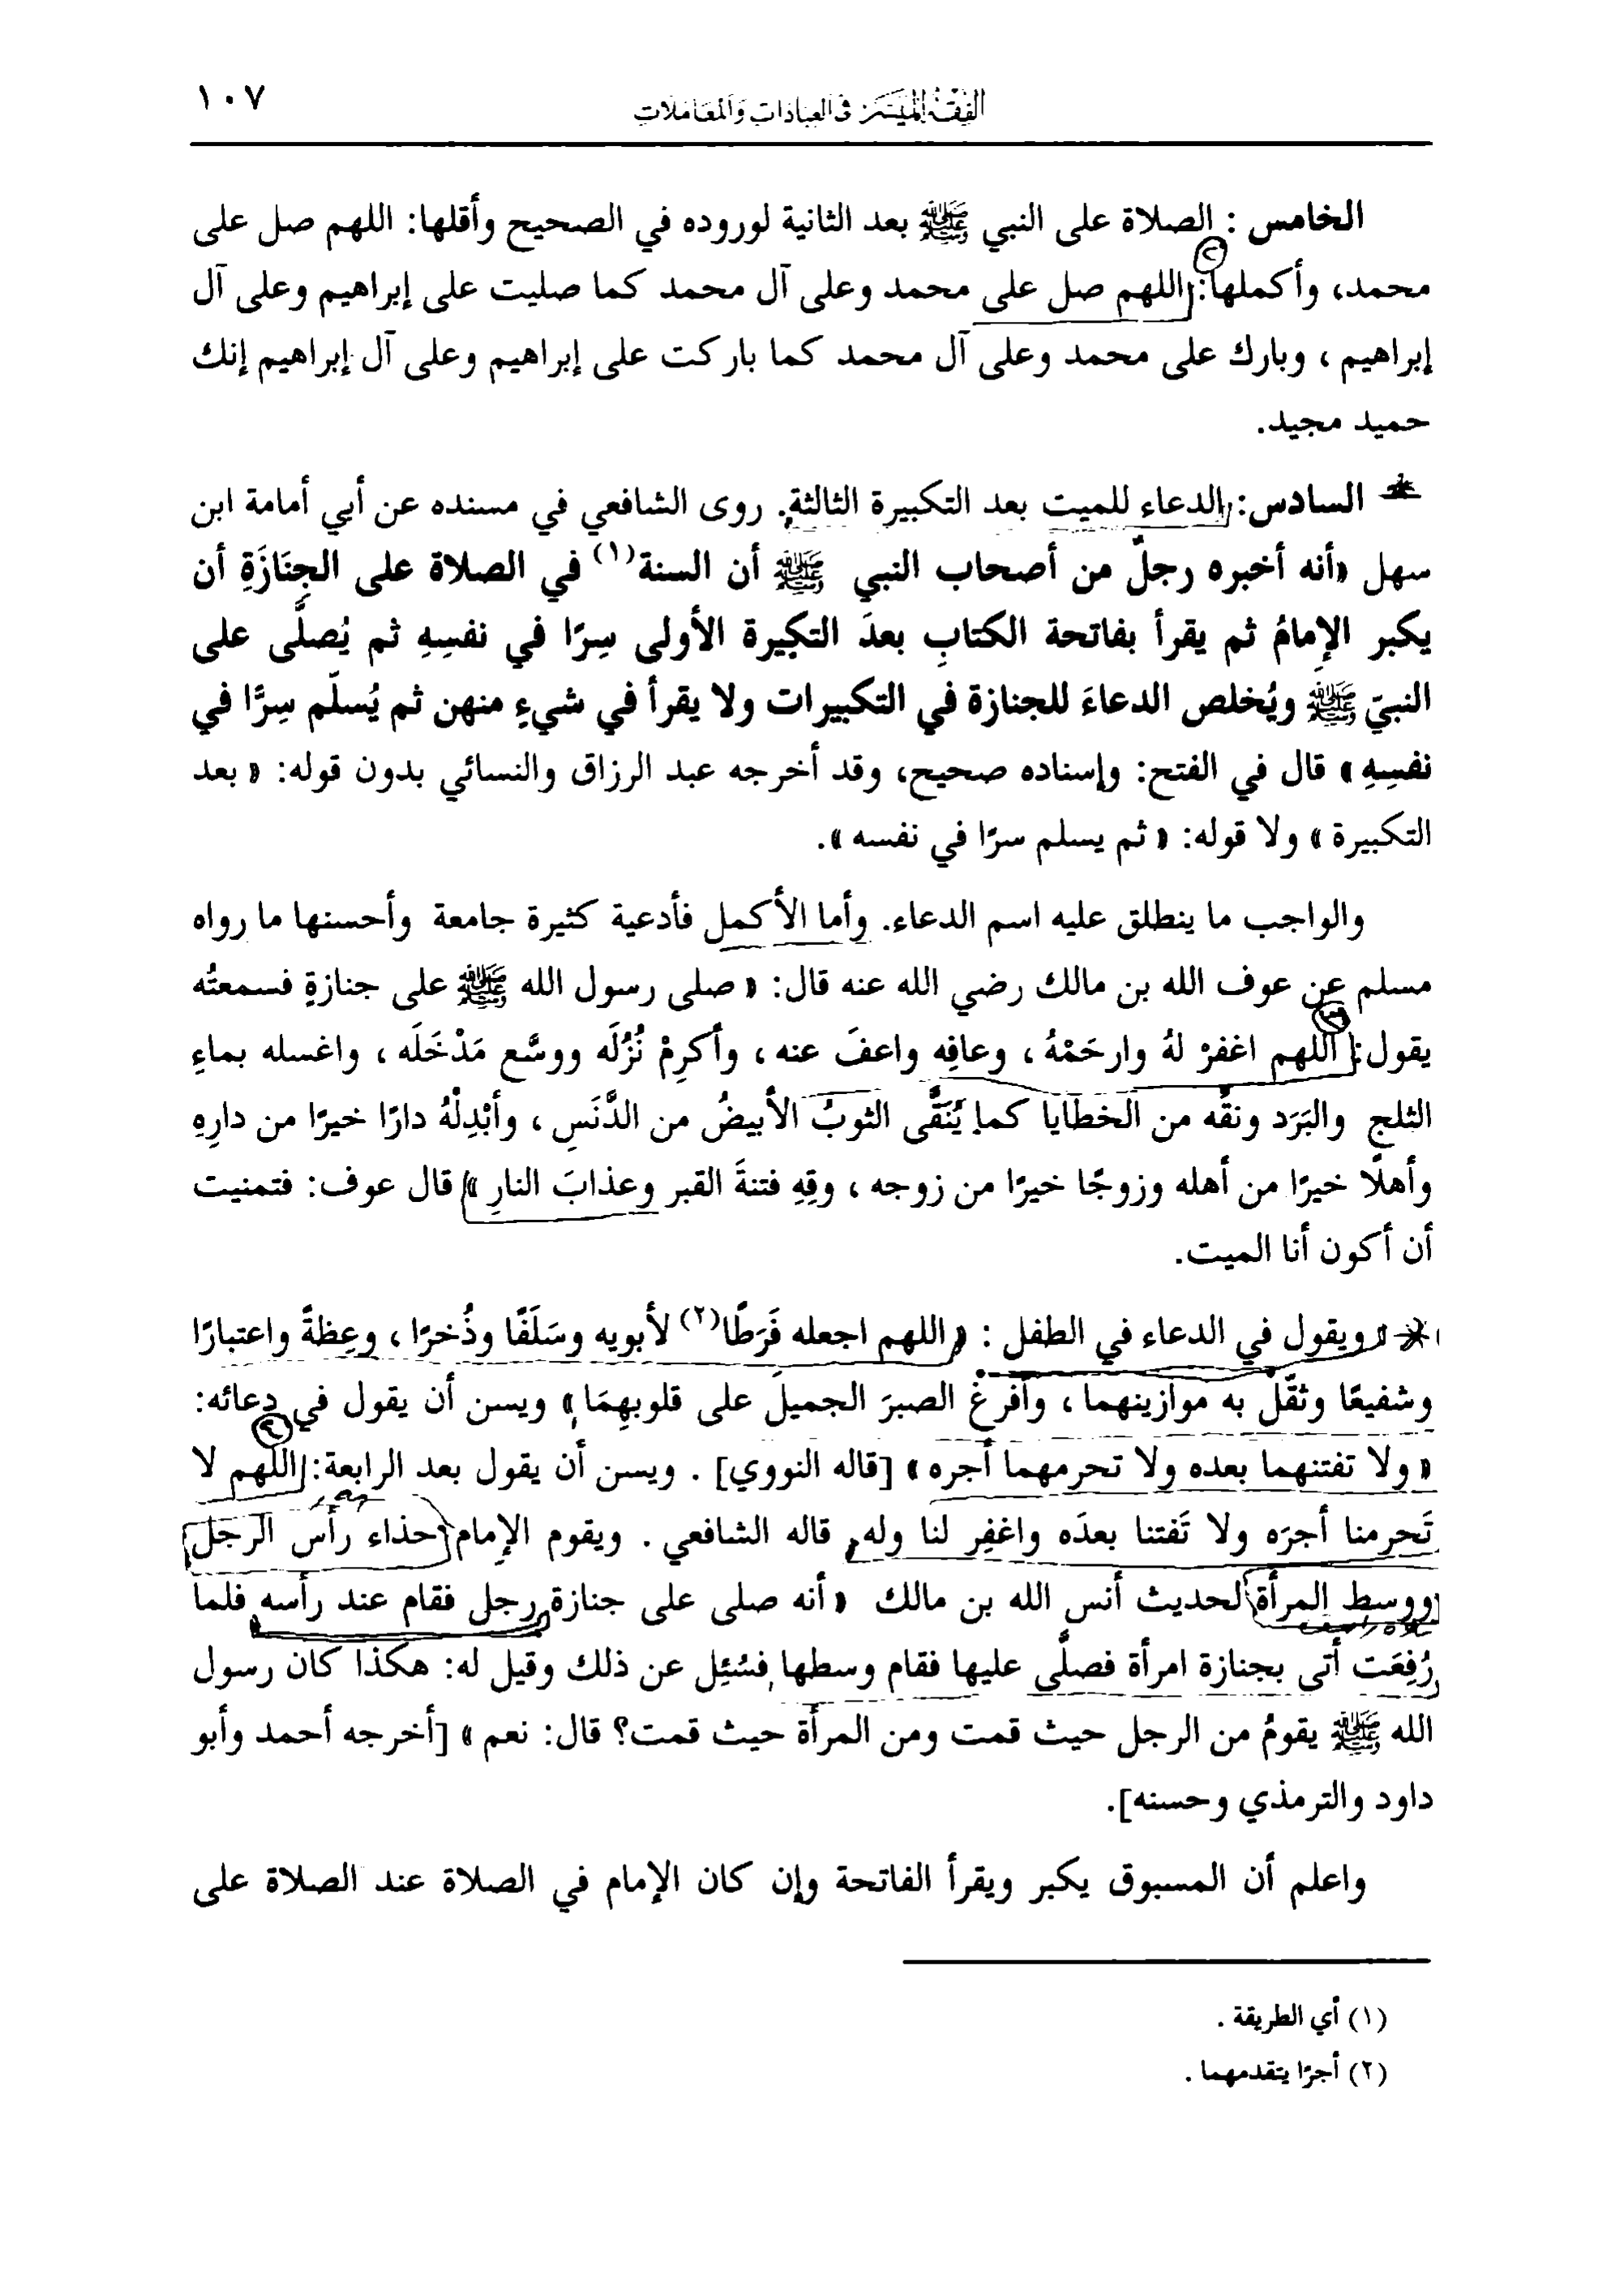 الفقه الميسر في العبادات والمعاملات ١٠٧
الخامس : الصلاة على النبي ﷺ بعد الثانية لوروده في الصحيح وأقلها: اللهم صل على
محمد، وأكملها: اللهم صل على محمد وعلى آل محمد كما صليت على إبراهيم وعلى آل
إبراهيم ، وبارك على محمد وعلى آل محمد كما باركت على إبراهيم وعلى آل إبراهيم إنك
حميد مجيد.
السادس: الدعاء للميت بعد التكبيرة الثالثة. روى الشافعي في مسنده عن أبي أمامة ابن
سهل «أنه أخبره رجلٌ من أصحاب النبي ﷺ أن السنة(١) في الصلاة على الجِنَازَةِ أن
يكبر الإمامُ ثم يقرأ بفاتحة الكتابِ بعدَ التكبيرة الأولى سِرًا في نفسِهِ ثم يُصلَّى على
النبيّ ﷺ ويُخلص الدعاءَ للجنازة في التكبيرات ولا يقرأ في شيءٍ منهن ثم يُسلّم سِرًّا في
نفسِهِ» قال في الفتح: وإسناده صحيح، وقد أخرجه عبد الرزاق والنسائي بدون قوله: « بعد
التكبيرة » ولا قوله: « ثم يسلم سرًا في نفسه ».
والواجب ما ينطلق عليه اسم الدعاء. وأما الأكمل فأدعية كثيرة جامعة وأحسنها ما رواه
مسلم عن عوف الله بن مالك رضي الله عنه قال: « صلى رسول الله ﷺ على جنازةٍ فسمعتُه
٣
يقول: اللهم اغفرْ لهُ وارحَمْهُ ، وعافِه واعفَ عنه ، وأكرِمْ نُزُلَه ووسَّع مَدْخَلَه ، واغسله بماءِ
الثلجِ والبَرَد ونقُّه من الخطايا كما يُنَقَّى الثوبُ الأبيضُ من الدَّنَسِ ، وأبْدِلْهُ دارًا خيرًا من دارِهِ
وأهلًا خيرًا من أهله وزوجًا خيرًا من زوجه ، وقِهِ فتنةَ القبر وعذابَ النارِ » قال عوف: فتمنيت
أن أكون أنا الميت.
ويقول في الدعاء في الطفل : « اللهم اجعله فَرَطًا(٢) لأبويه وسَلَفًا وذُخرًا ، وعِظةً واعتبارًا
وشفيعًا وثقّلْ به موازينهما ، وأفرغْ الصبرَ الجميلَ على قلوبهِمَا » ويسن أن يقول في دعائه:
« ولا تفتنهما بعده ولا تحرمهما أجره » [قاله النووي] . ويسن أن يقول بعد الرابعة: اللهم لا
تَحرمنا أجرَه ولا تَفتنا بعدَه واغفِر لنا وله، قاله الشافعي . ويقوم الإمام حذاء رأس الرجل
ووسط المرأة لحديث أنس الله بن مالك « أنه صلى على جنازة رجل فقام عند رأسه فلما
رُفِعَت أتى بجنازة امرأة فصلَّى عليها فقام وسطها فسُئِل عن ذلك وقيل له: هكذا كان رسول
الله ﷺ يقومُ من الرجل حيث قمت ومن المرأة حيث قمت؟ قال: نعم » [أخرجه أحمد وأبو
داود والترمذي وحسنه].
واعلم أن المسبوق يكبر ويقرأ الفاتحة وإن كان الإمام في الصلاة عند الصلاة على
(١) أي الطريقة .
(٢) أجرًا يتقدمهما .